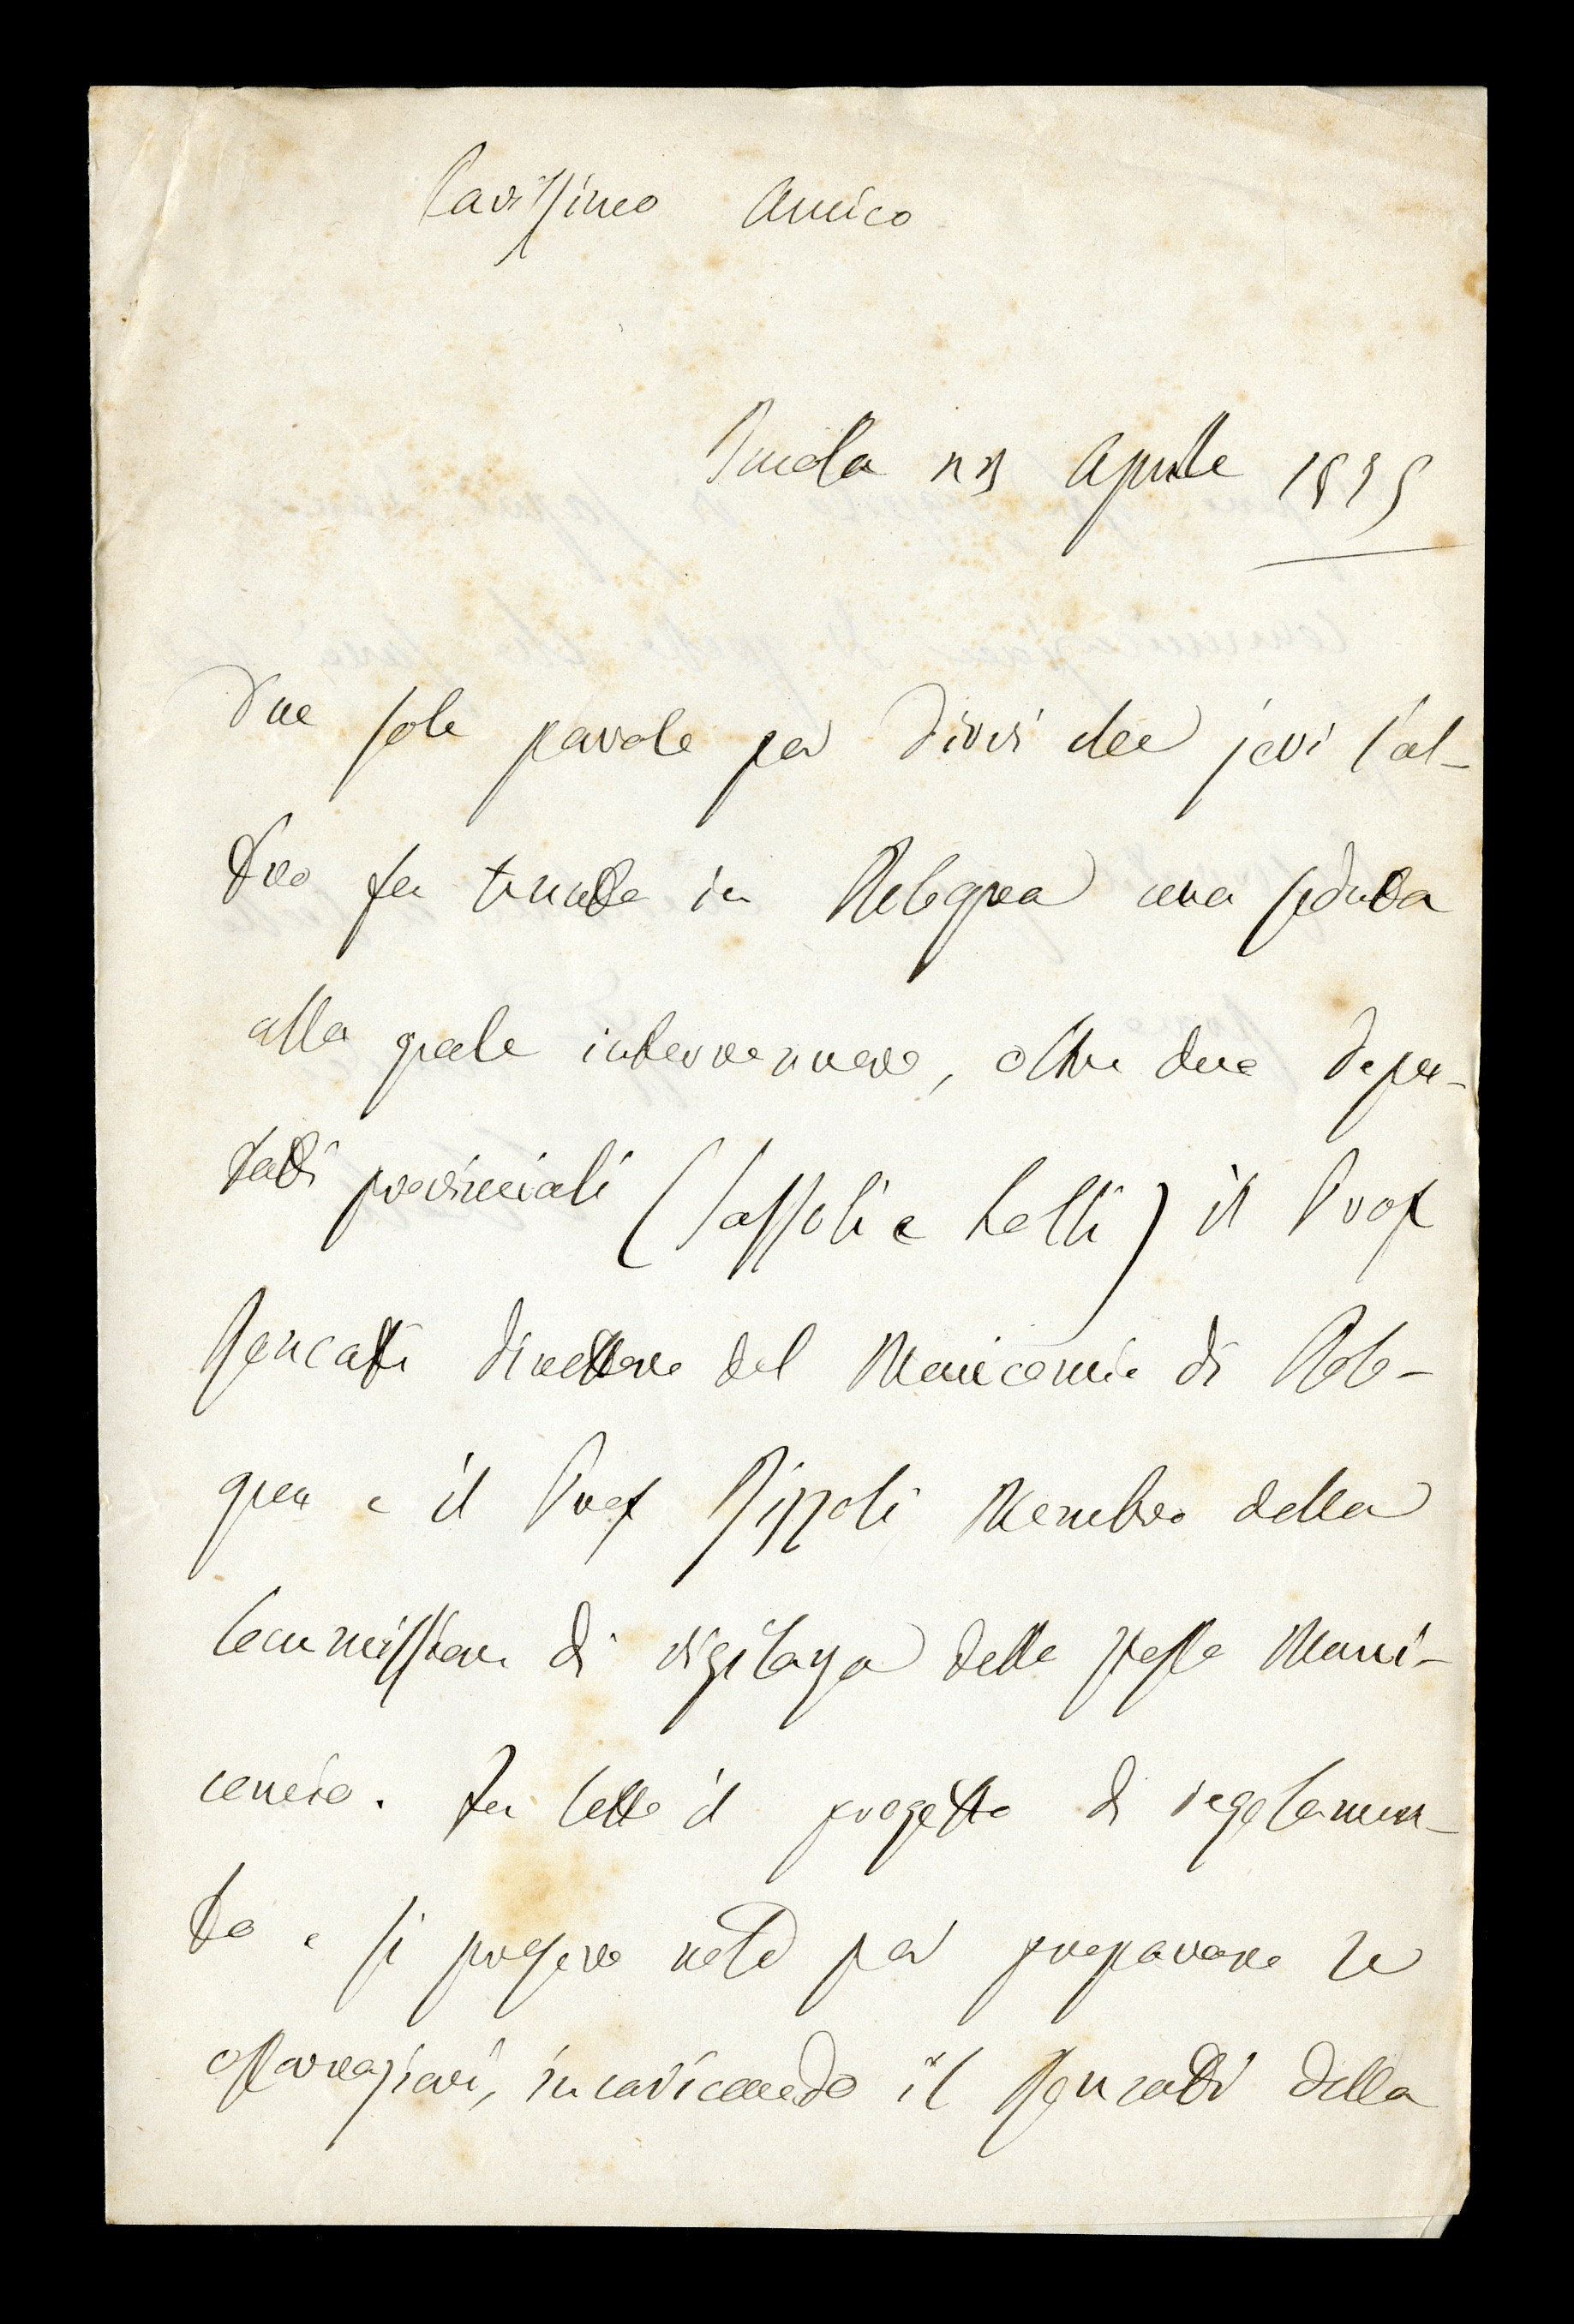 Carissimo Amico
Imola Aprile
Due sole parole per dirvi che jeri l'al-
tro fu tenuta in Bologna una seduta
alla quale intervennero, oltre due depu-
tati provinciali (Sassoli e Lolli) il Prof
Roncati direttore del Manicomio di Bolo-
gna e il Prof Rizzoli Membro della
Commissione di vigilanza dello stesso Mani-
comio. Fu letto il progetto di regolamen-
to e si presero note per preparare le
osservazioni, incaricando il Roncati della